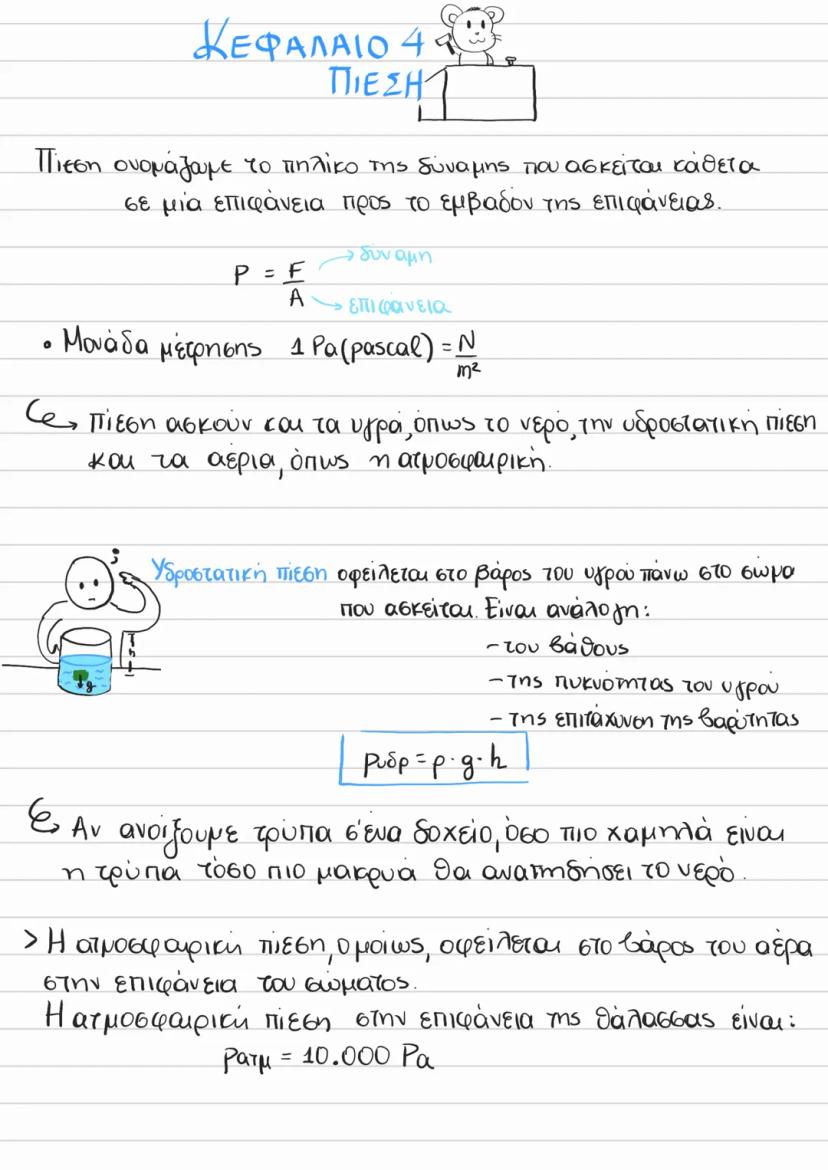 ΚΕΦΑΛΑΙΟ 4
ΠΙΕΣΗ
Πίεση ονομάζωμε το πηλίκο της δύναμης που ασκείται κάθετα
σε μία επιφάνεια προς το εμβαδόν της επιφάνειας.
P = F/A
δύναμη
επιφάνεια
• Μονάδα μέτρησης 1 Pa (pascal) = N/m²
Πίεση ασκούν και τα υγρά, όπως το νερό, την υδροστατική πίεση
και τα αέρια, όπως η ατμοσφαιρική.
Υδροστατική πίεση οφείλεται στο βάρος του υγρού πάνω στο σώμα
που ασκείται. Είναι ανάλογη:
- του βάθους
- της πυκνότητας του υγρού
- της επιτάχυνση της βαρύτητας
h
g
Pυδρ = ρ · g · h
Αν ανοίξουμε τρύπα σ'ένα δοχείο, όσο πιο χαμηλά είναι
η τρύπα τόσο πιο μακρυά θα αναπηδήσει το νερό.
> Η ατμοσφαιρική πίεση, ομοίως, οφείλεται στο βάρος του αέρα
στην επιφάνεια του σώματος.
Η ατμοσφαιρική πίεση στην επιφάνεια της θάλασσας είναι:
Pατμ = 10.000 Pa